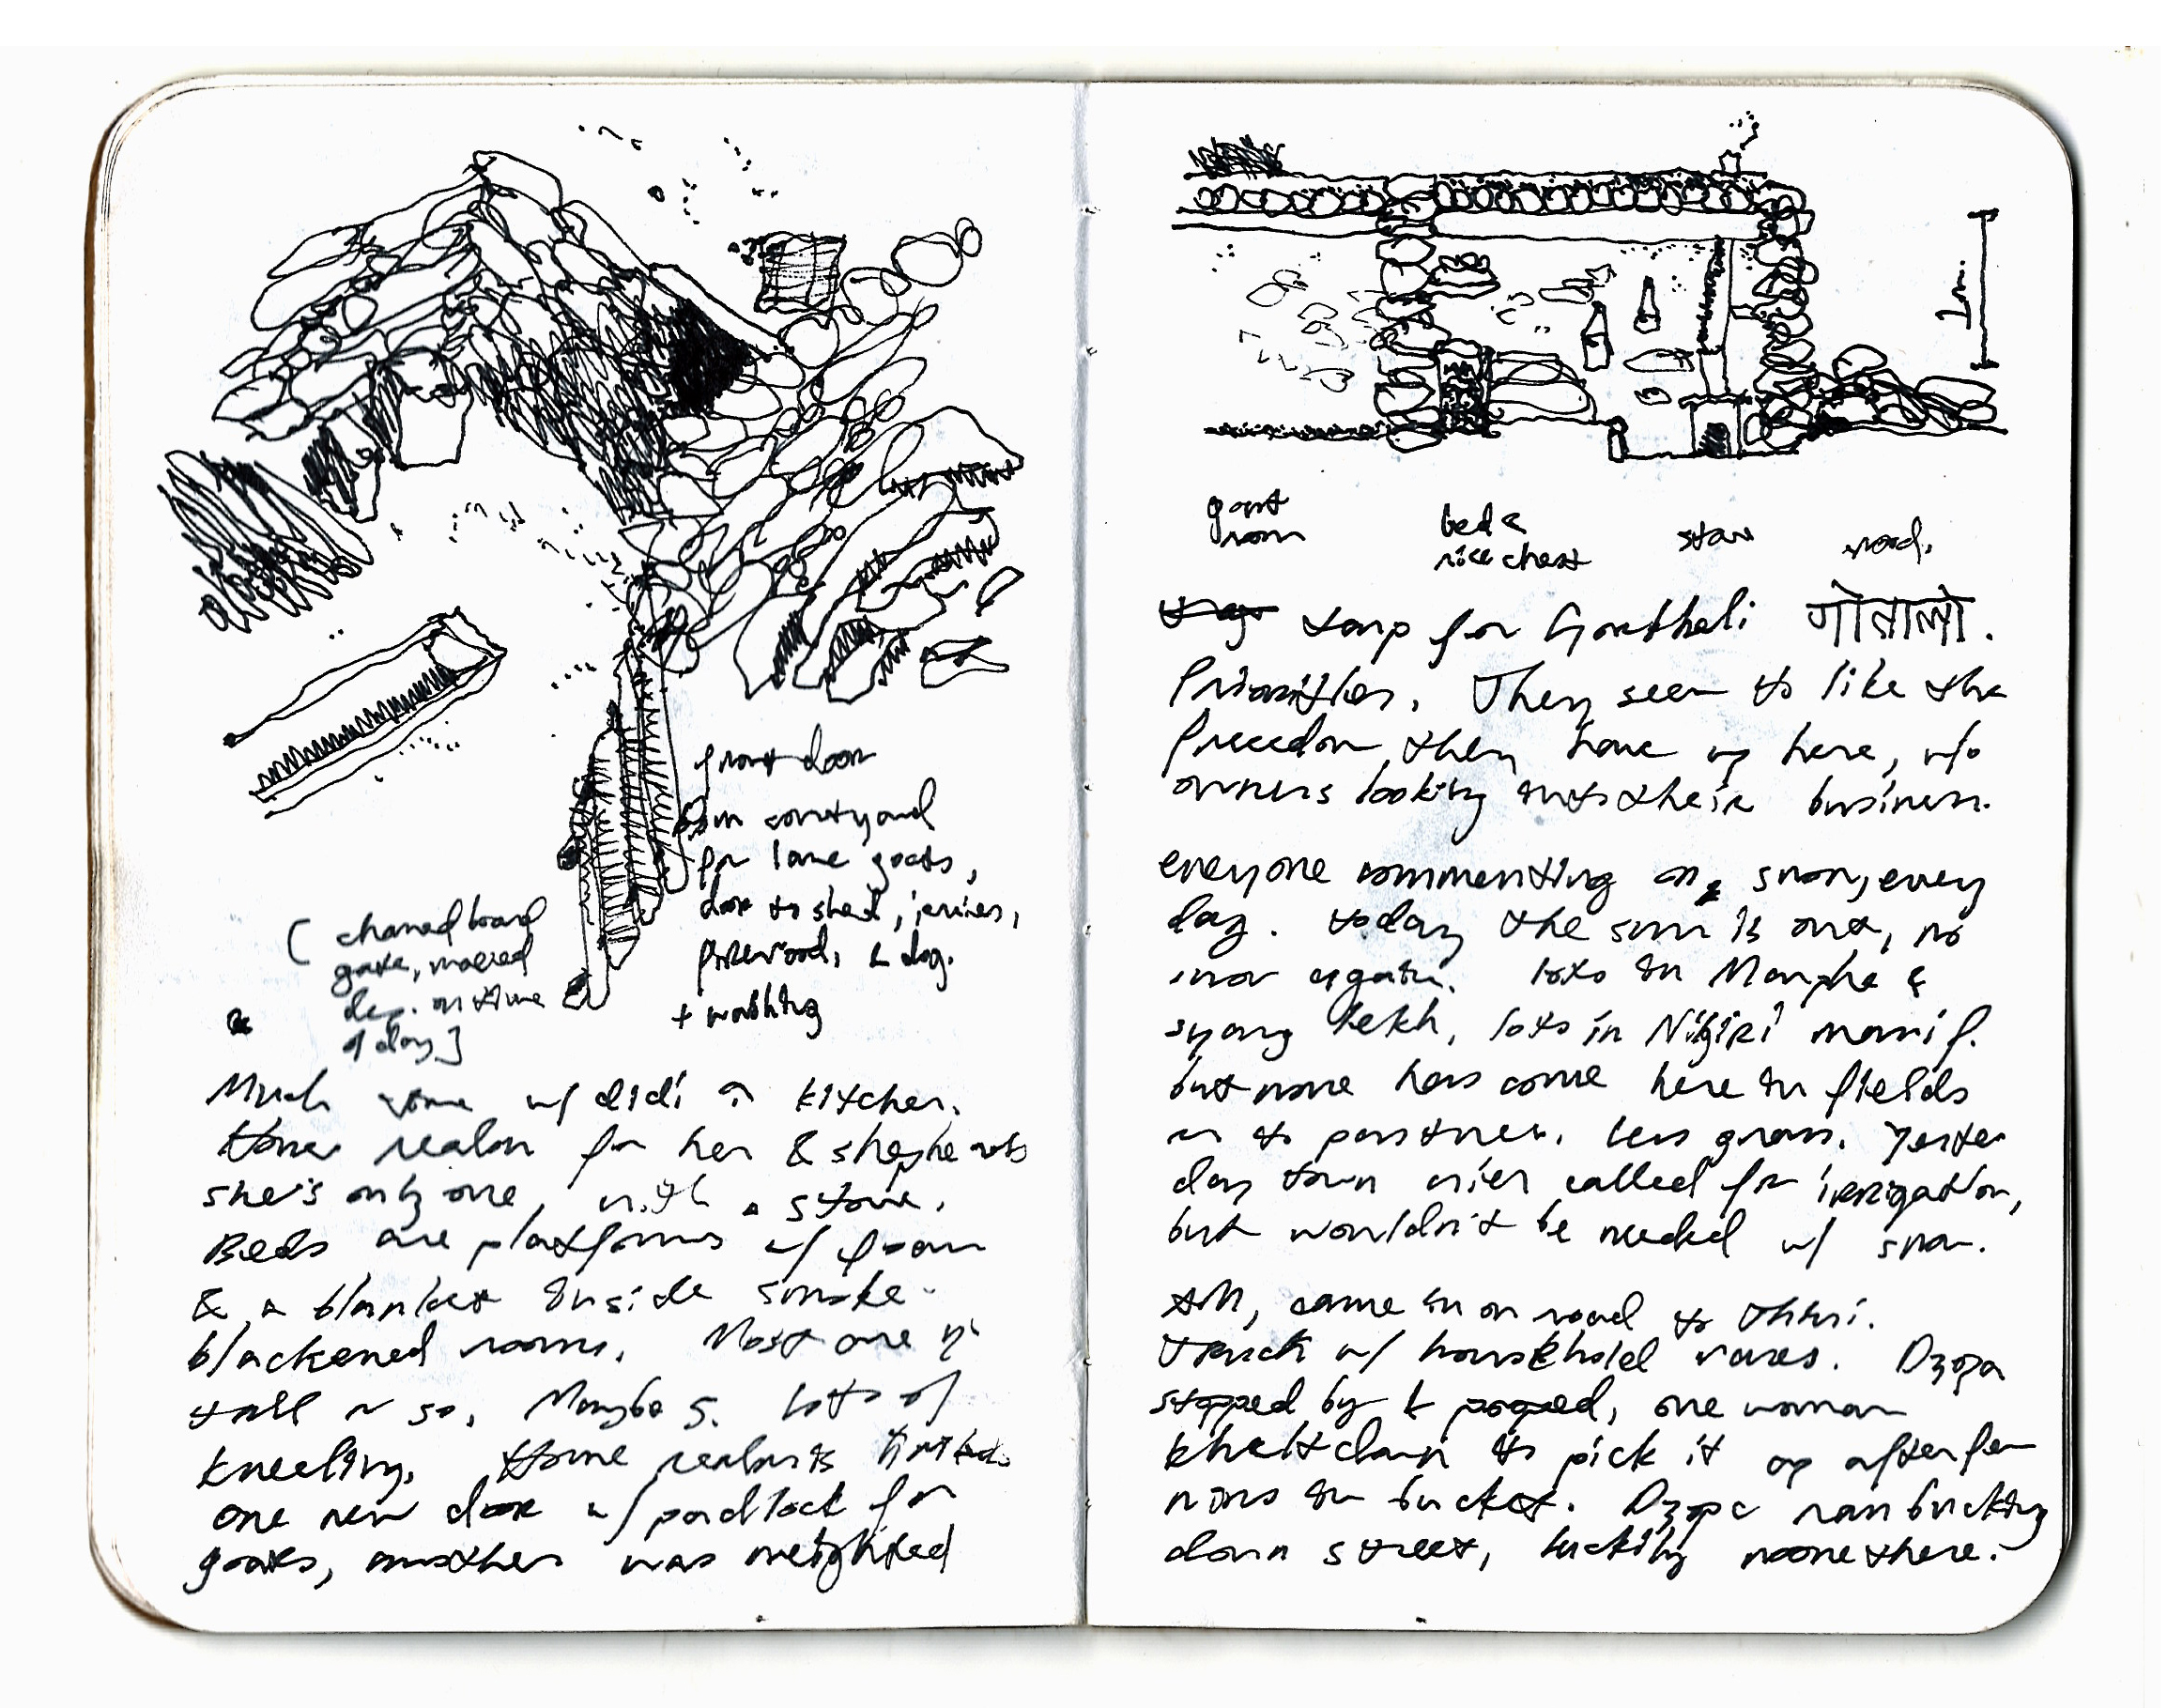 front door
in courtyard
for lame goats,
door to shed, jerries,
firewood, & dog.
+ washing
( charred board
gate, moved
dep. on time
of day]
Much time w/ didi in kitchen.
stone realm for her & shepherds
she's only one, with a stove.
Beds are platforms w/ foam
& a blanket inside smoke-
blackened rooms. Most are
tall or so. Maybe 5. lots of
kneeling. stone realm is
one new door w/ padlock for
goats, another was weighted
2m.
goat
room
bed &
rice chest
stove
wood.
tarp for Goatheli गोठालो.
Priorities. They seem to like the
freedom they have up here, w/o
owners looking into their business.
everyone commenting on snow, every
day. today the sun is out, no
snow again. lots in Marpha &
syang lekh, lots in Nilgiri massif.
but none has come here in fields
or to pastures. less grass. Yester
day town crier called for irrigation,
but wouldn't be needed w/ snow.
Ah, came in on road to Thini.
Truck w/ household wares. Dzopa
stopped by & pooped, one woman
knelt down to pick it up after few
mins in bucket. Dzopa ran bucking
down street, luckily noone there.